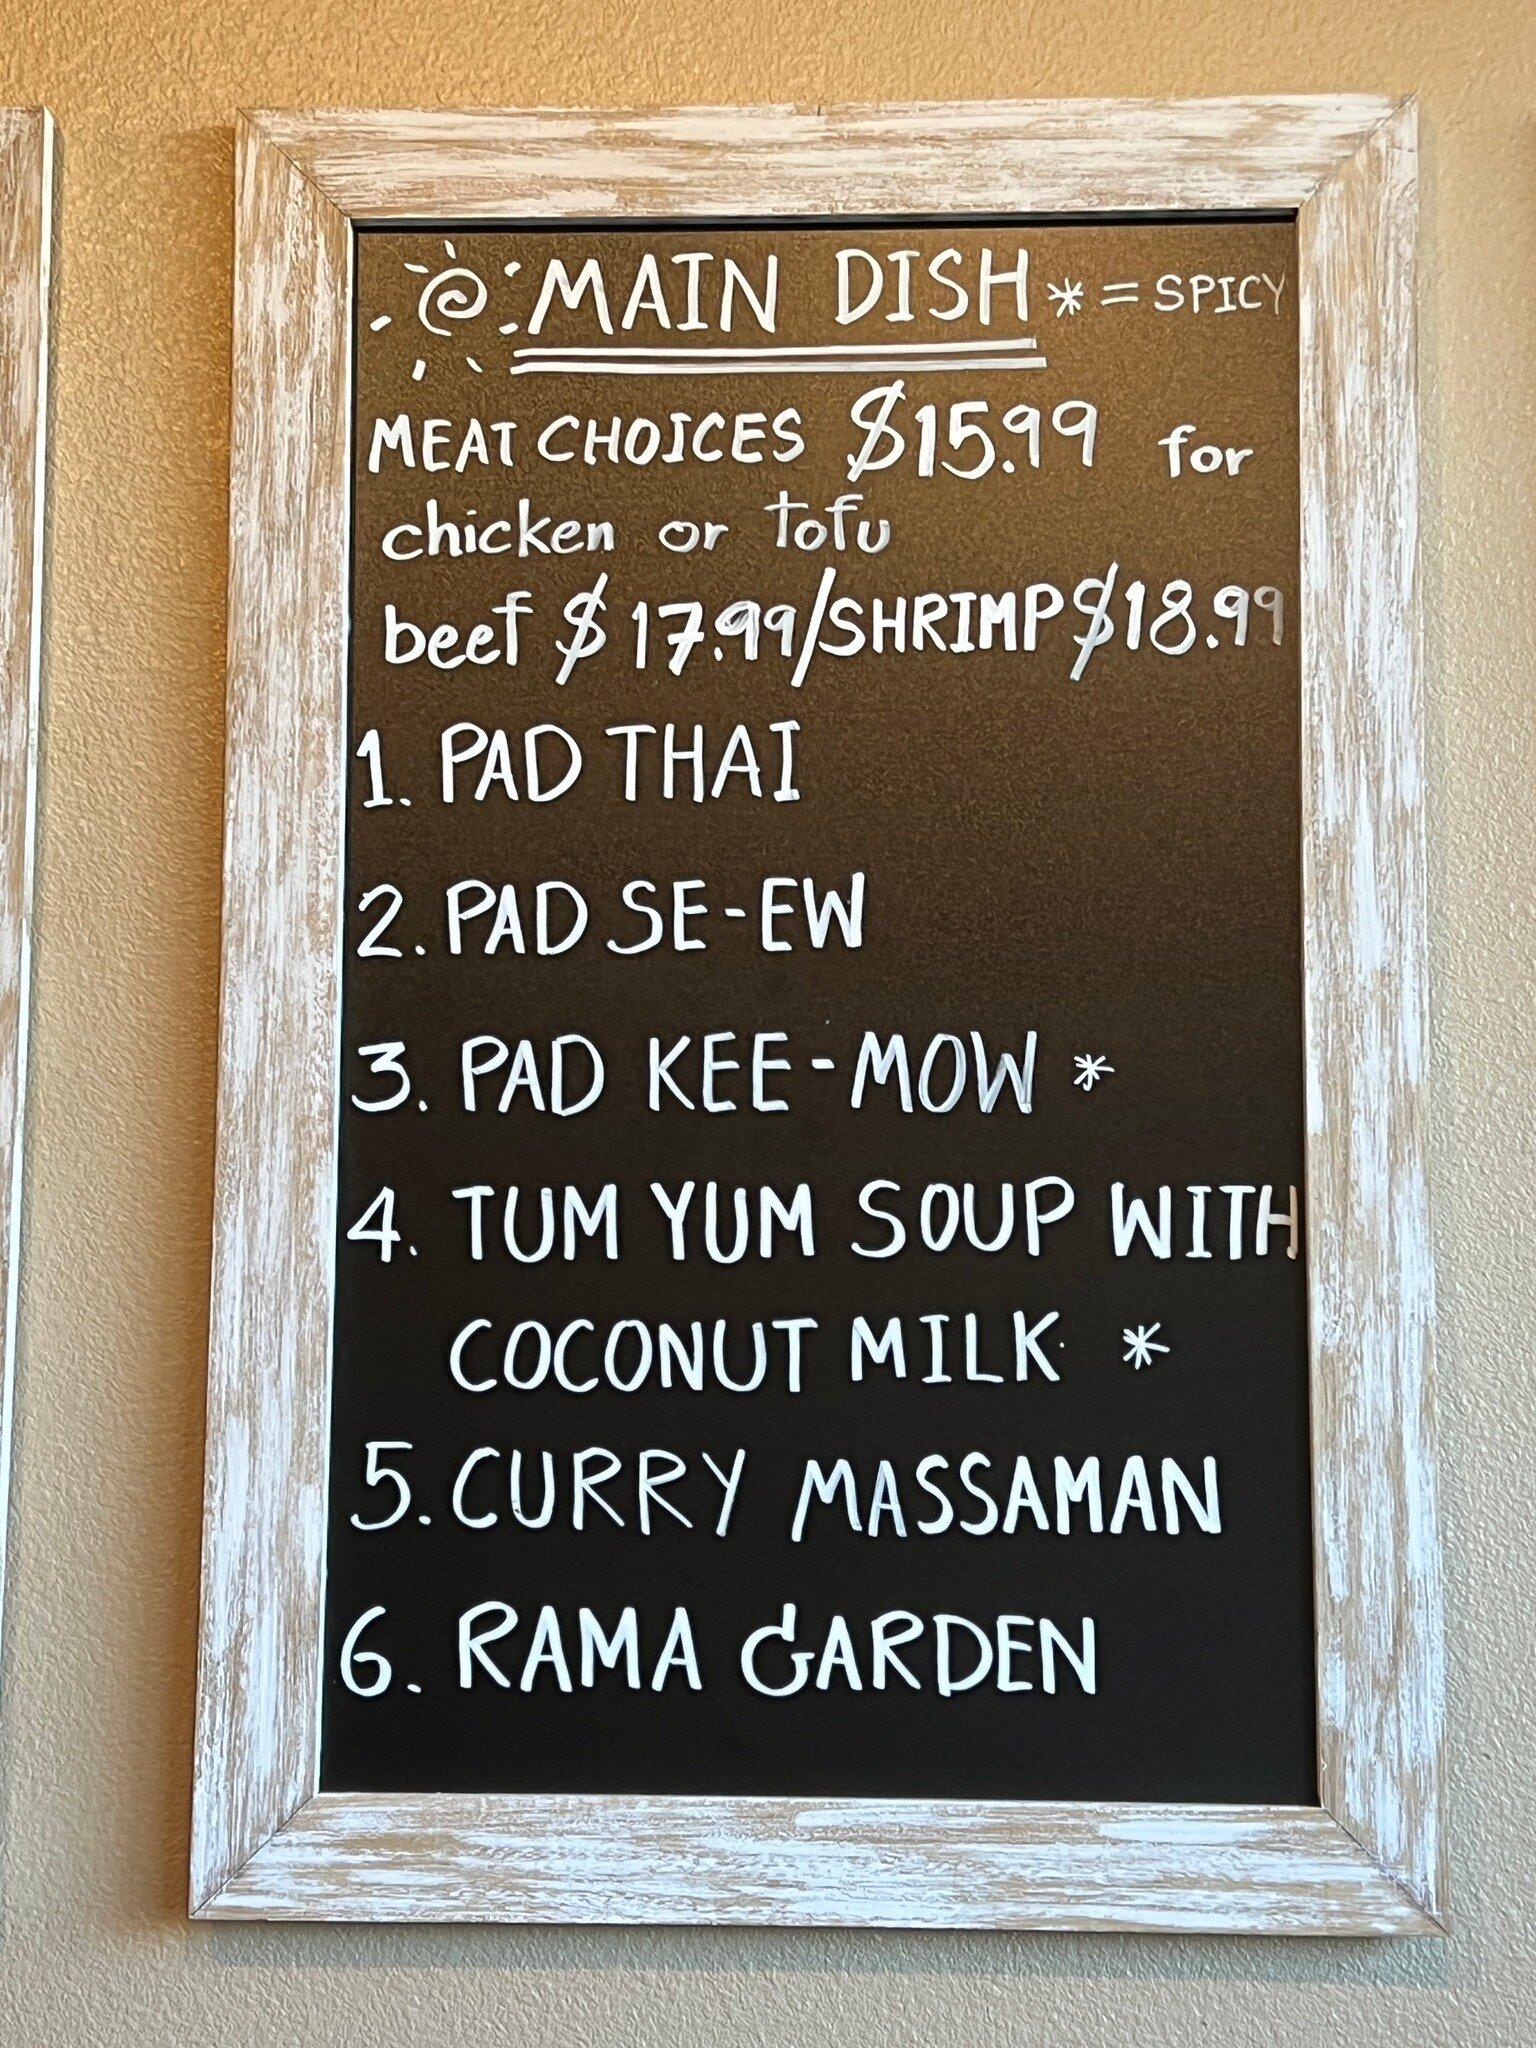 MAIN DISH * = SPICY
MEAT CHOICES $15.99 for
chicken or tofu
beef $17.99/SHRIMP $18.99
1. PAD THAI
2. PAD SE-EW
3. PAD KEE-MOW *
4. TUM YUM SOUP WITH
COCONUT MILK *
5. CURRY MASSAMAN
6. RAMA GARDEN